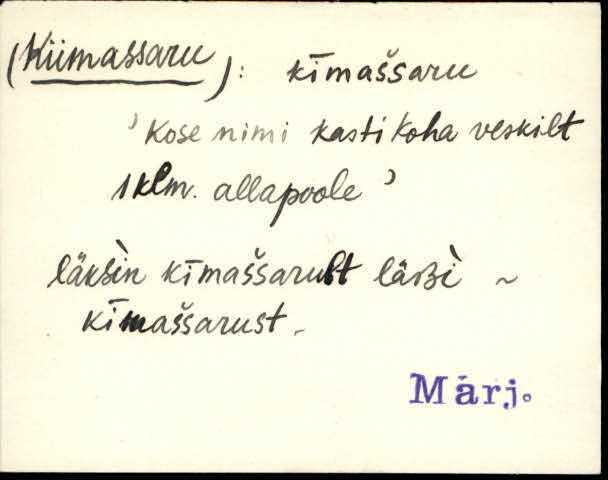 (Kiimassaru): kīmašsaru
'Kose nimi kasti koha veskilt
1 klm. allapoole'
läksìn kīmašsarult lä̀bì ~
kīmašsarust.
Märj.